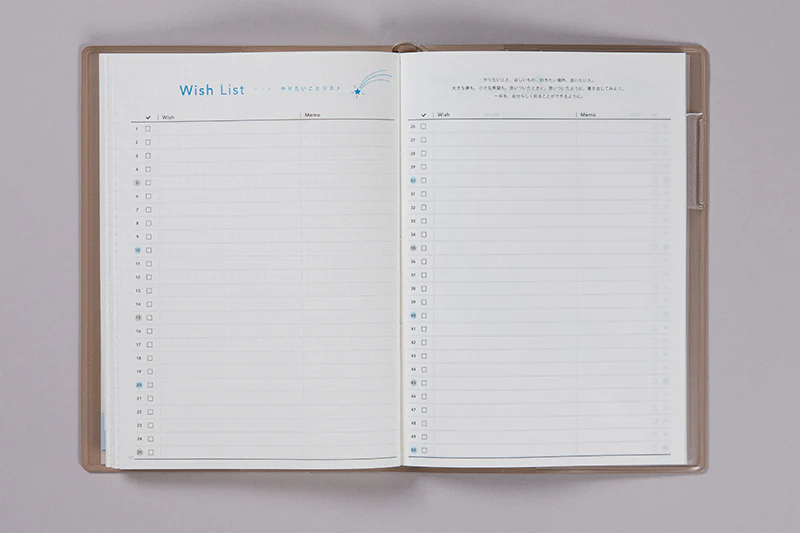 Wish List ・・・ やりたいことリスト
✓ Wish Memo
1
2
3
4
5
6
7
8
9
10
11
12
13
14
15
16
17
18
19
20
21
22
23
24
25
やりたいこと、ほしいもの、行きたい場所、会いたい人。
大きな夢も、小さな希望も、思いついたときに、思いついたように、書き出してみよう。
自分らしく彩ることができるように。
✓ Wish Memo
26
27
28
29
30
31
32
33
34
35
36
37
38
39
40
41
42
43
44
45
46
47
48
49
50